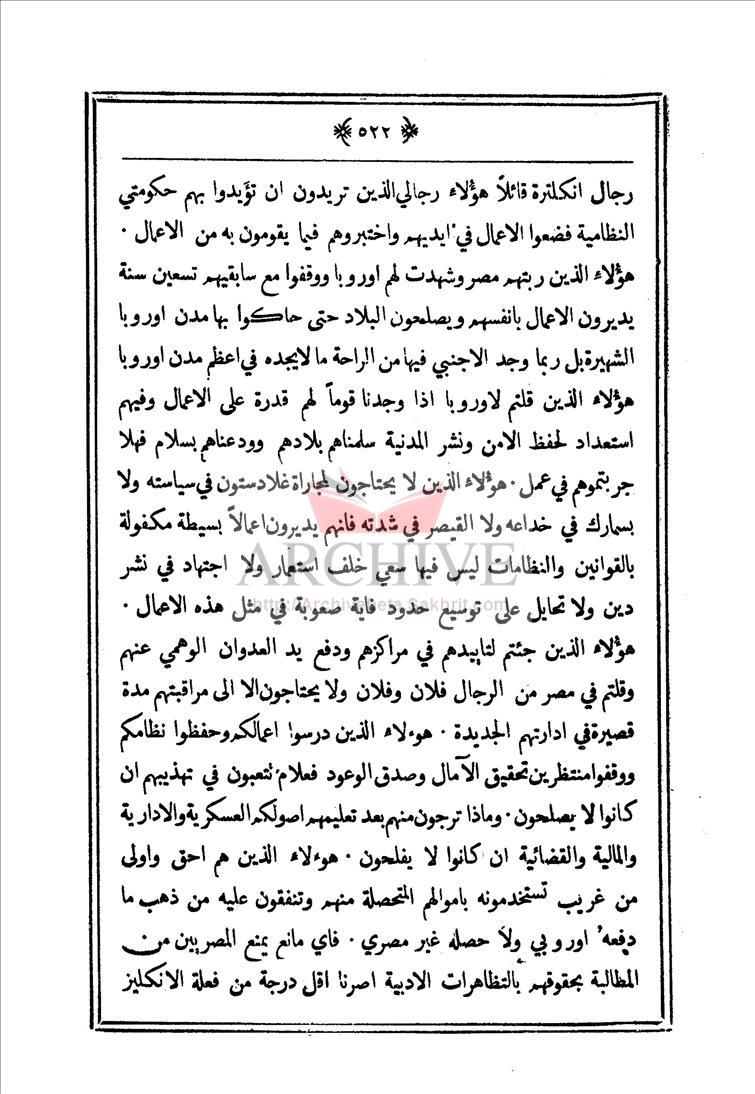 ﴿ ٥٢٢ ﴾
رجال انكلترة قائلاً هؤلاء رجالي الذين تريدون ان تؤَيدوا بهم حكومتي
النظامية فضعوا الاعمال في ايديهم واختبروهم فيما يقومون به من الاعمال ٠
هؤلاء الذين ربتهم مصر وشهدت لهم اوروبا ووقفوا مع سابقيهم تسعين سنة
يديرون الاعمال بانفسهم ويصلحون البلاد حتى حاكوا بها مدن اوروبا
الشهيرة بل ربما وجد الاجنبي فيها من الراحة ما لا يجده في اعظم مدن اوروبا
هؤلاء الذين قلتم لاوروبا اذا وجدنا قوماً لهم قدرة على الاعمال وفيهم
استعداد لحفظ الامن ونشر المدنية سلمناهم بلادهم وودعناهم بسلام فهلا
جربتموهم في عمل ٠ هؤلاء الذين لا يحتاجون لمجاراة غلادستون في سياسته ولا
بسمارك في خداعه ولا القيصر في شدته فانهم يديرون اعمالاً بسيطة مكفولة
ARCHIVE
بالقوانين والنظامات ليس فيها سعي خلف استعمار ولا اجتهاد في نشر
http://Archivebeta.Sakhrit.com
دين ولا تحايل على توسيع حدود فاية صعوبة في مثل هذه الاعمال ٠
هؤلاء الذين جئتم لتاييدهم في مراكزهم ودفع يد العدوان الوهمي عنهم
وقلتم في مصر من الرجال فلان وفلان ولا يحتاجون الا الى مراقبتهم مدة
قصيرة في ادارتهم الجديدة ٠ هوءلاء الذين درسوا اعمالكم وحفظوا نظامكم
ووقفوا منتظرين تحقيق الآمال وصدق الوعود فعلام تتعبون في تهذيبهم ان
كانوا لا يصلحون ٠ وماذا ترجون منهم بعد تعليمهم اصولكم العسكرية والادارية
والمالية والقضائية ان كانوا لا يفلحون ٠ هوءلاء الذين هم احق واولى
من غريب تستخدمونه باموالهم المتحصلة منهم وتنفقون عليه من ذهب ما
دفعه اوروبي ولا حصله غير مصري ٠ فاي مانع يمنع المصريين من
المطالبة بحقوقهم بالتظاهرات الادبية اصرنا اقل درجة من فعلة الانكليز